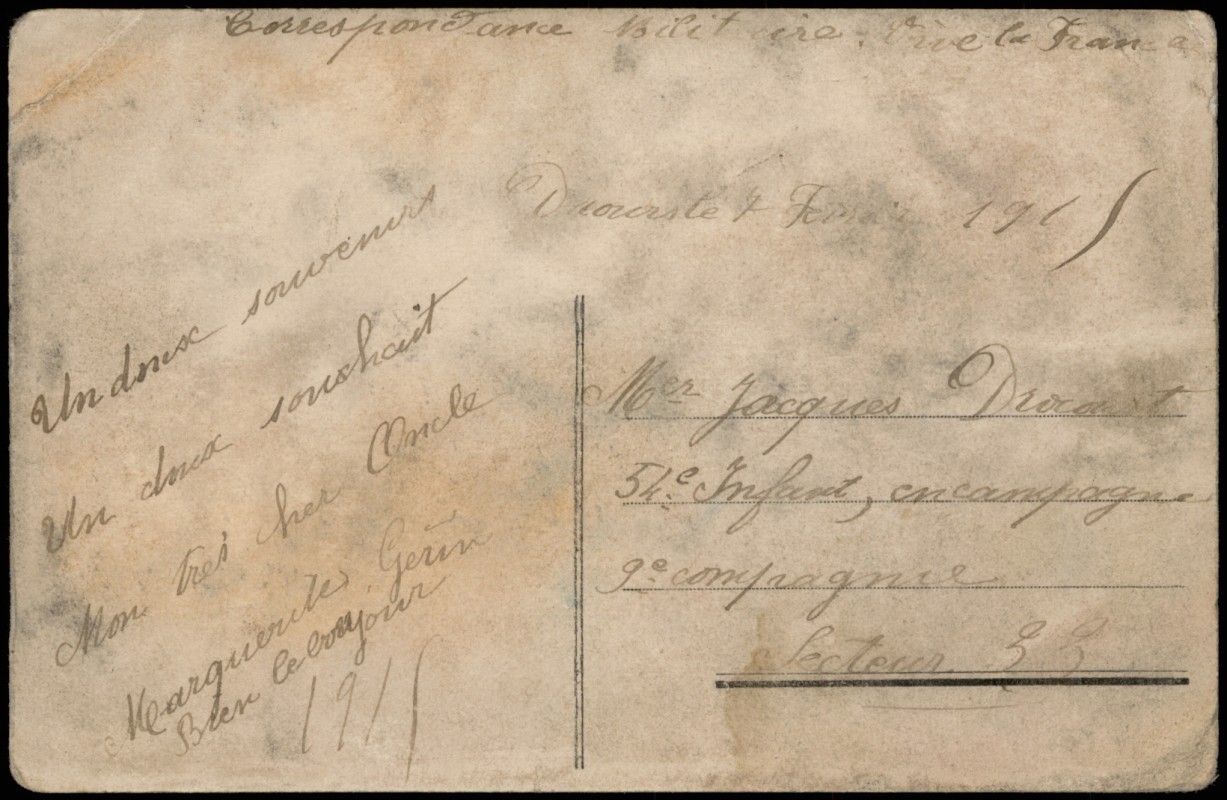 Correspondance Militaire. Vive la France
Février 1915
Un doux souvenirs
Un doux souhait
Mon très cher Oncle
Marguerite Gerin
Bien le bonjour
1915
Mer Jacques Drocourt
54e Infant, en campagne
9e compagnie
Secteur